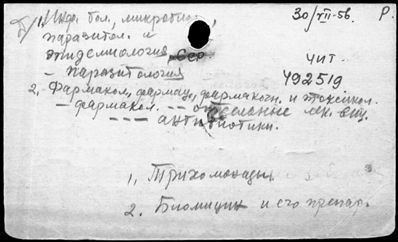 1. Инф. бол., микробиол., 30/VII-56. Р.
паразитол. и
эпидемиология Сер чит.
- паразитология 492519
2. Фармакол., фармац., фармакогн. и токсикол.
- фармакол. -- отдельные лек. вещ.
---- антибиотики.
1. Трихомонады
2. Биомицин и его препар.